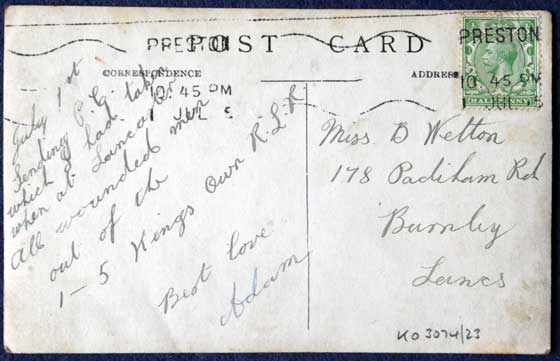 POST CARD
CORRESPONDENCE
ADDRESS
PRESTON
10.45 PM
1 JUL
PRESTON
10.45 PM
1 JUL
HALFPENNY
July 1st
Sending P.C.
which I had taken
when at Lancaster
All wounded men
out of the
1-5 Kings Own R.L.R
Best love
Adam
Miss D Welton
178 Padiham Rd
Burnley
Lancs
KO 3074/23